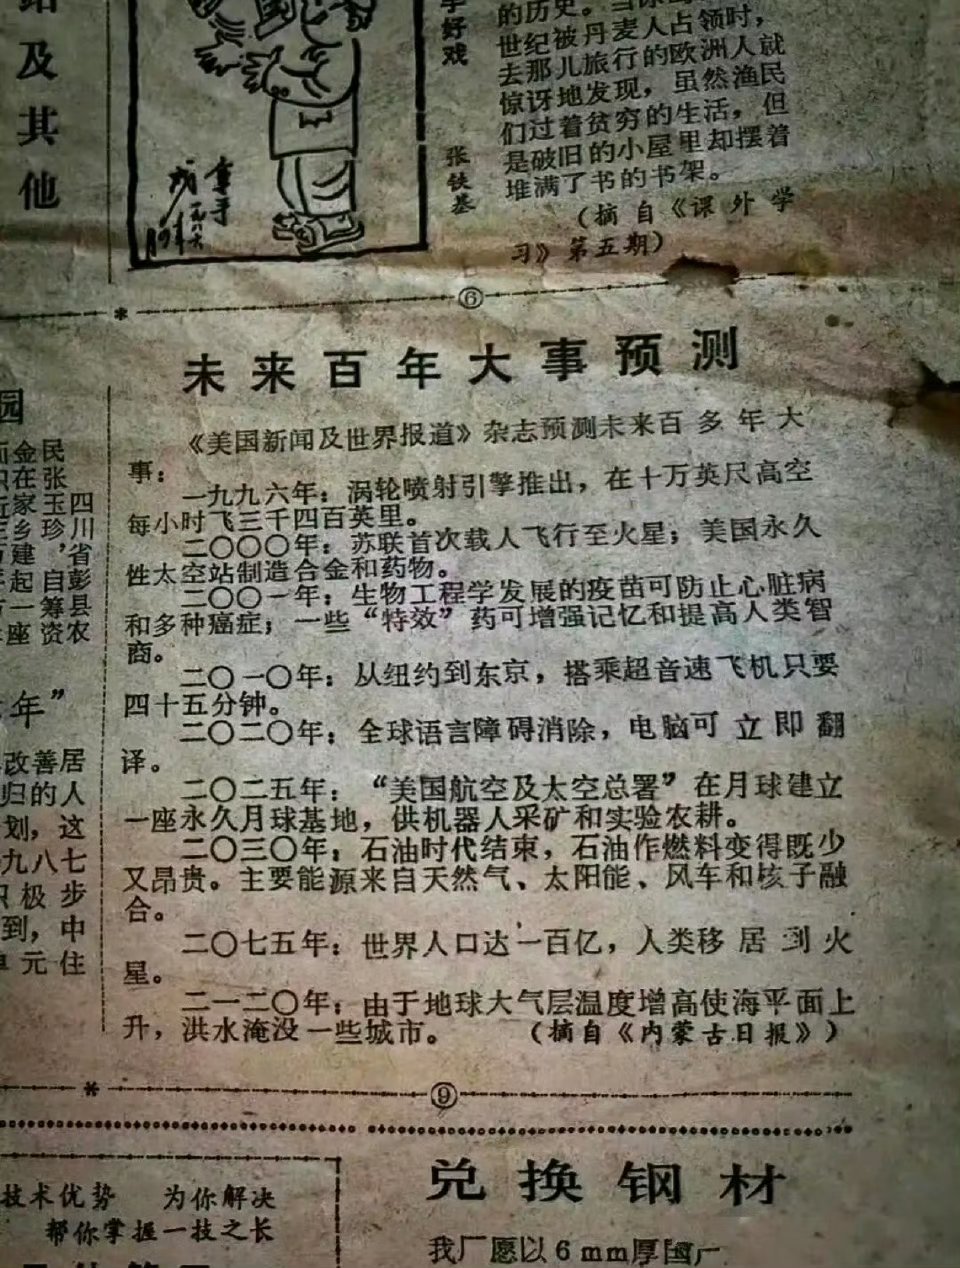 及
其
他
好
戏
张铁基
拿手
一九八六
的历史。
世纪被丹麦人占领时，
去那儿旅行的欧洲人就
惊讶地发现，虽然渔民
们过着贫穷的生活，但
是破旧的小屋里却摆着
堆满了书的书架。
（摘自《课外学
习》第五期）
⑥
未来百年大事预测
《美国新闻及世界报道》杂志预测未来百多年大
事：
一九九六年：涡轮喷射引擎推出，在十万英尺高空
每小时飞三千四百英里。
二〇〇〇年：苏联首次载人飞行至火星；美国永久
性太空站制造合金和药物。
二〇〇一年：生物工程学发展的疫苗可防止心脏病
和多种癌症；一些“特效”药可增强记忆和提高人类智
商。
二〇一〇年：从纽约到东京，搭乘超音速飞机只要
四十五分钟。
二〇二〇年：全球语言障碍消除，电脑可立即翻
译。
二〇二五年：“美国航空及太空总署”在月球建立
一座永久月球基地，供机器人采矿和实验农耕。
二〇三〇年：石油时代结束，石油作燃料变得既少
又昂贵。主要能源来自天然气、太阳能、风车和核子融
合。
二〇七五年：世界人口达一百亿，人类移居到火
星。
二一二〇年：由于地球大气层温度增高使海平面上
升，洪水淹没一些城市。（摘自《内蒙古日报》）
⑨
园
四川省彭县农
民张玉珍，自筹资
金在家乡建起一座
年”
改善居
归的人
划，这
九八七
极步
到，中
单元住
技术优势 为你解决
帮你掌握一技之长
兑换钢材
我厂愿以6mm厚国